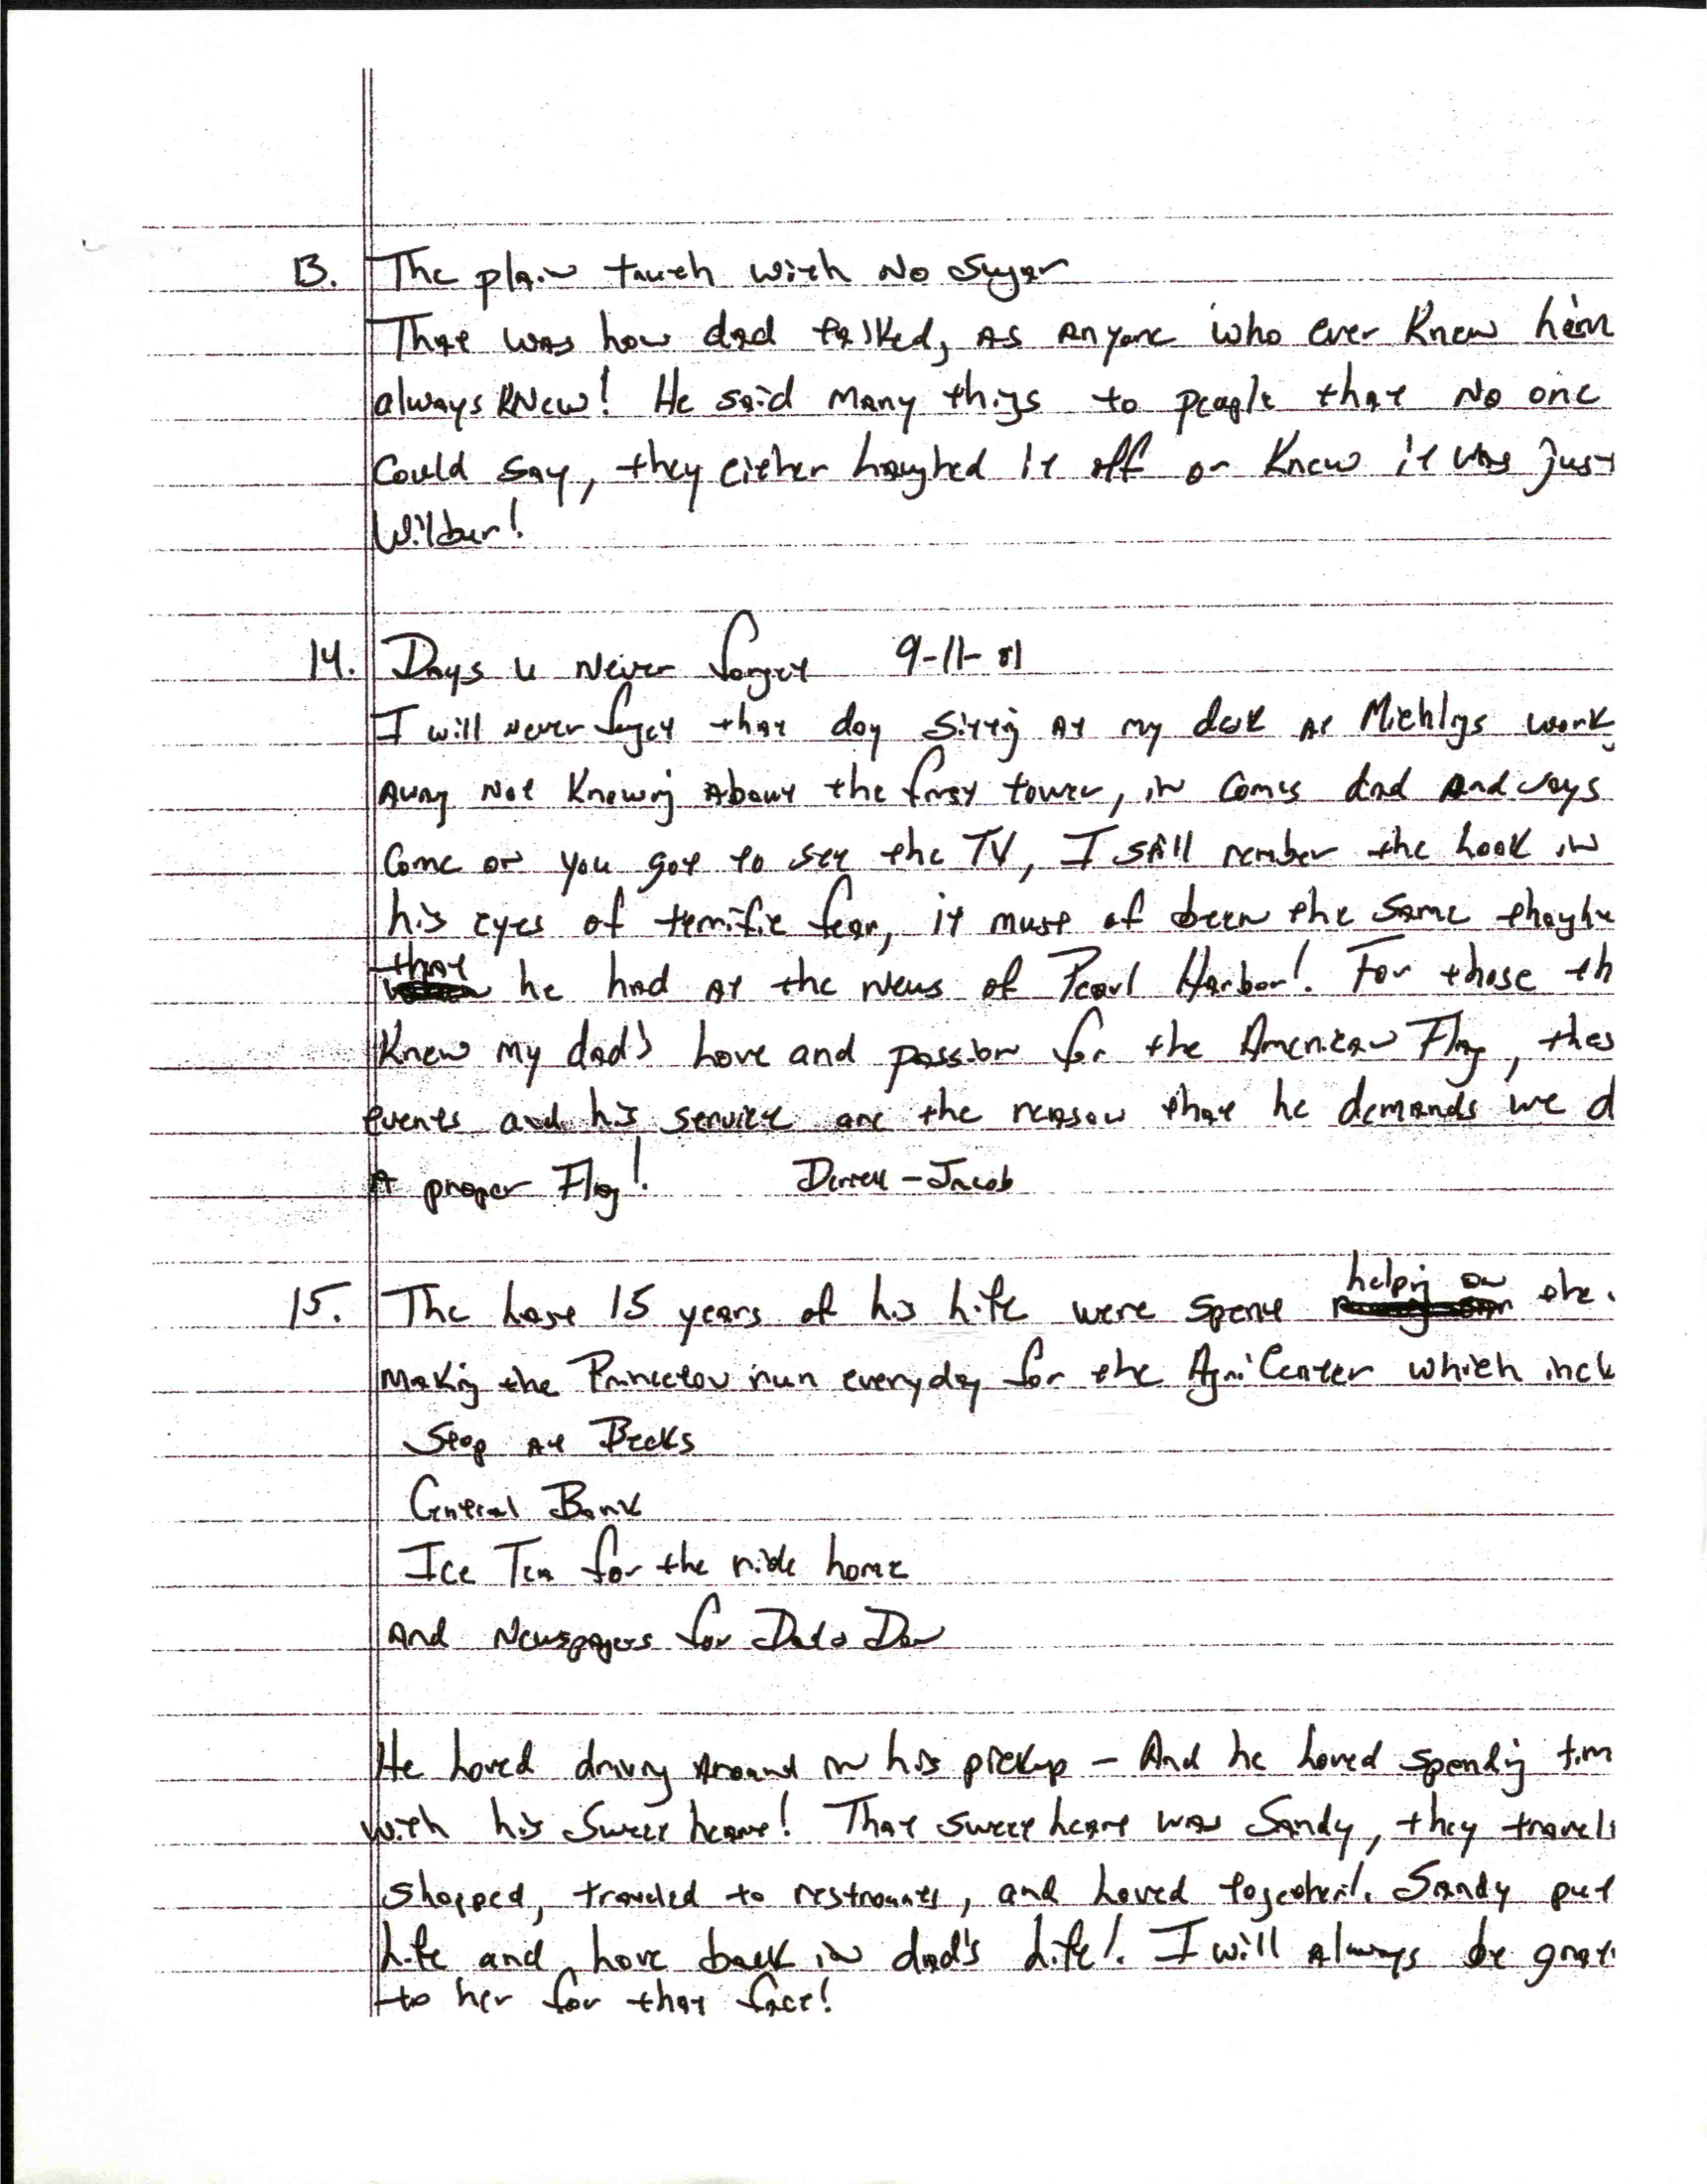 13. The plain truth with No Sugar
That was how dad talked, as anyone who ever knew him
always knew! He said many things to people that no one
could say, they either laughed it off or knew it was just
Wilbur!
14. Days u never forget 9-11-01
I will never forget that day sitting at my desk at Michligs work
away not knowing about the first tower, in comes dad and says
come on you got to see the TV, I still rember the look in
his eyes of terrific fear, it must of been the same thought
that he had at the news of Pearl Harbor! For those th
knew my dad's love and passion for the American Flag, thes
events and his service are the reason that he demands we d
a proper Flag! Darrell - Jacob
15. The last 15 years of his life were spent helping on the
making the Princeton run everyday for the Agri Center which incl
Stop at Becks
Central Bank
Ice Tea for the ride home
and Newspapers for Dad & Don
He loved driving around in his pickup - And he loved spending tim
with his sweet heart! That sweet heart was Sandy, they travel
shopped, traveled to restraunts, and loved together!. Sandy put
life and love back in dad's life!. I will always be grat
to her for that fact!